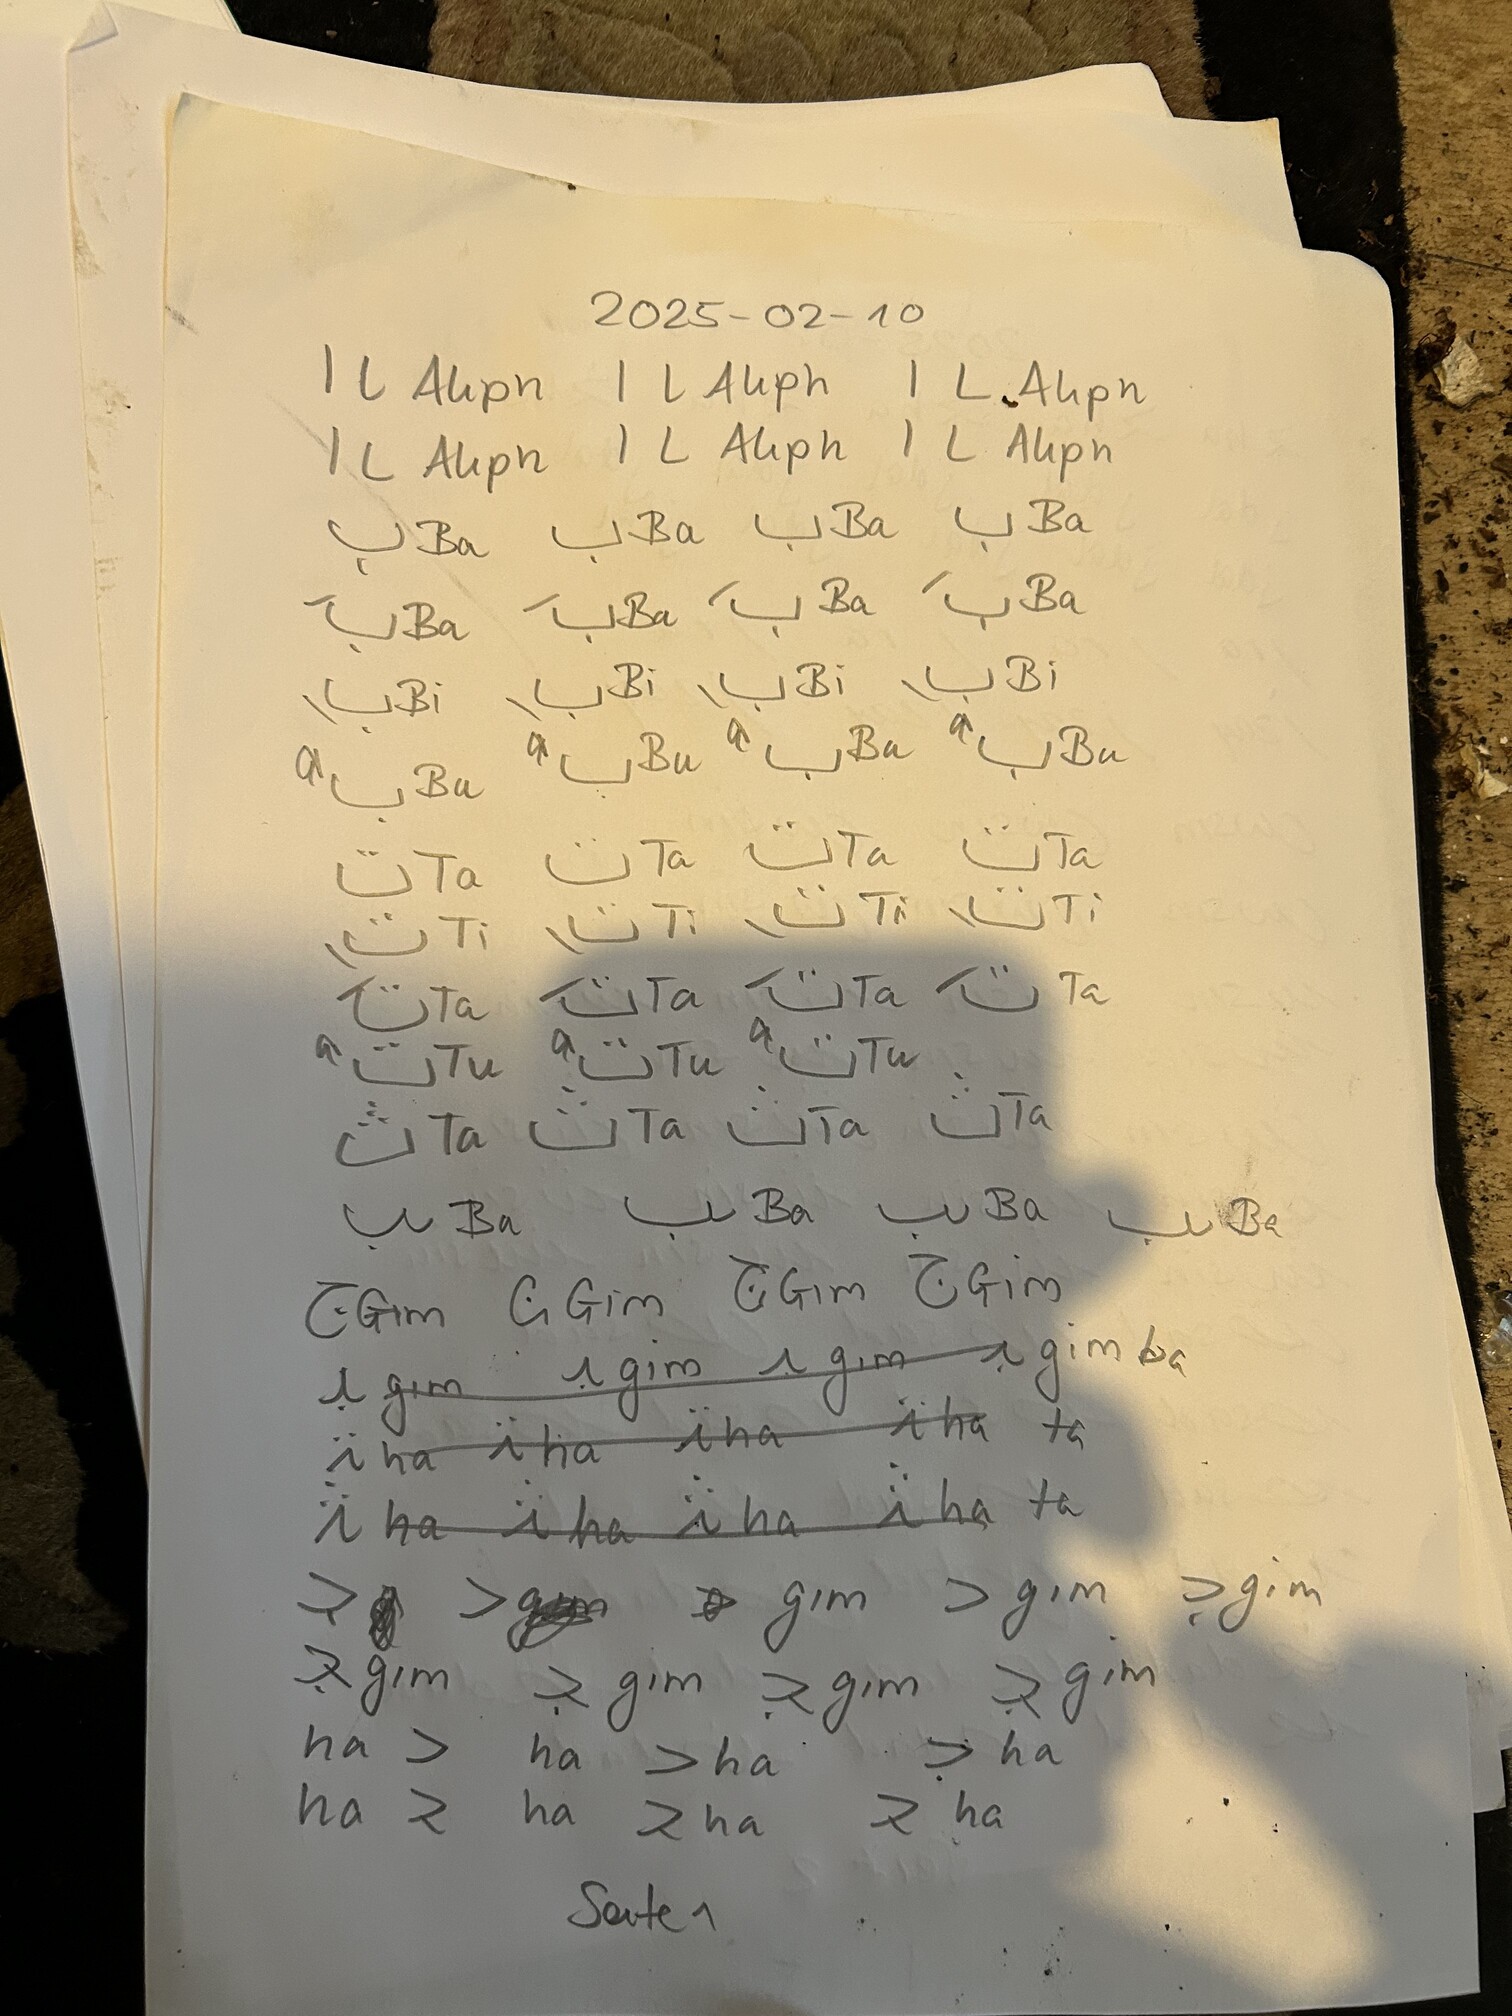 2025-02-10
ا L Aliph ا L Aliph ا L Aliph
ا L Aliph ا L Aliph ا L Aliph
ب Ba ب Ba ب Ba ب Ba
بَ Ba بَ Ba بَ Ba بَ Ba
بِ Bi بِ Bi بِ Bi بِ Bi
بُ Bu بُ Bu بُ Bu بُ Bu
ت Ta ت Ta ت Ta ت Ta
تِ Ti تِ Ti تِ Ti تِ Ti
تَ Ta تَ Ta تَ Ta تَ Ta
تُ Tu تُ Tu تُ Tu
ث Ta ث Ta ث Ta ث Ta
ب Ba ب Ba ب Ba ب Ba
ج Gim ج Gim ج Gim ج Gim
ـبـ gim ـبـ gim ـبـ gim ـبـ gim ba
ـتـ ha ـتـ ha ـتـ ha ـتـ ha ta
ـثـ ha ـثـ ha ـثـ ha ـثـ ha ta
gim gim ج gim
ـجـ gim ـجـ gim ـجـ gim ـجـ gim
ha ح ha ح ha ha
ha ـحـ ha ـحـ ha ـحـ ha
Seite 1